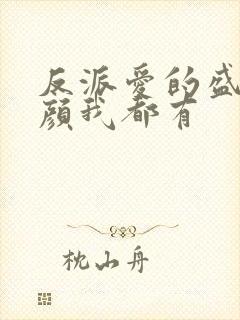 反派爱的盛
颜我都有
枕山舟